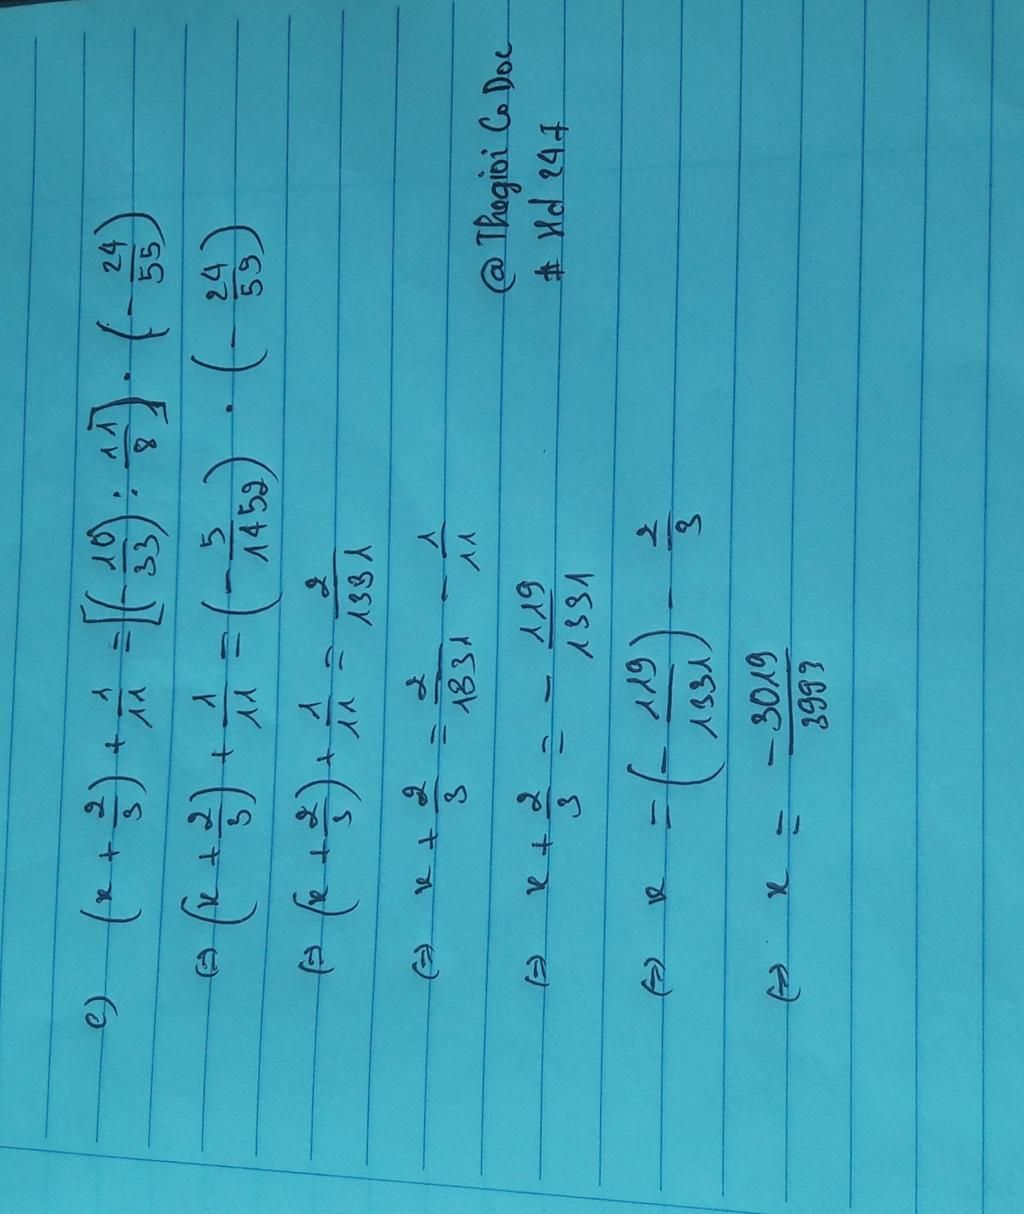 e) (x + 2/3) + 1/11 = [(-10/33) : 11/8] . (-24/55)
(=) (x + 2/3) + 1/11 = (-5/1452) . (-24/55)
(=) (x + 2/3) + 1/11 = 2/1331
(=) x + 2/3 = 2/1331 - 1/11
(=) x + 2/3 = - 119/1331
(=) x = (-119/1331) - 2/3
(=) x = -3019/3993
@ Thegioi Co Doc
# Hd 247